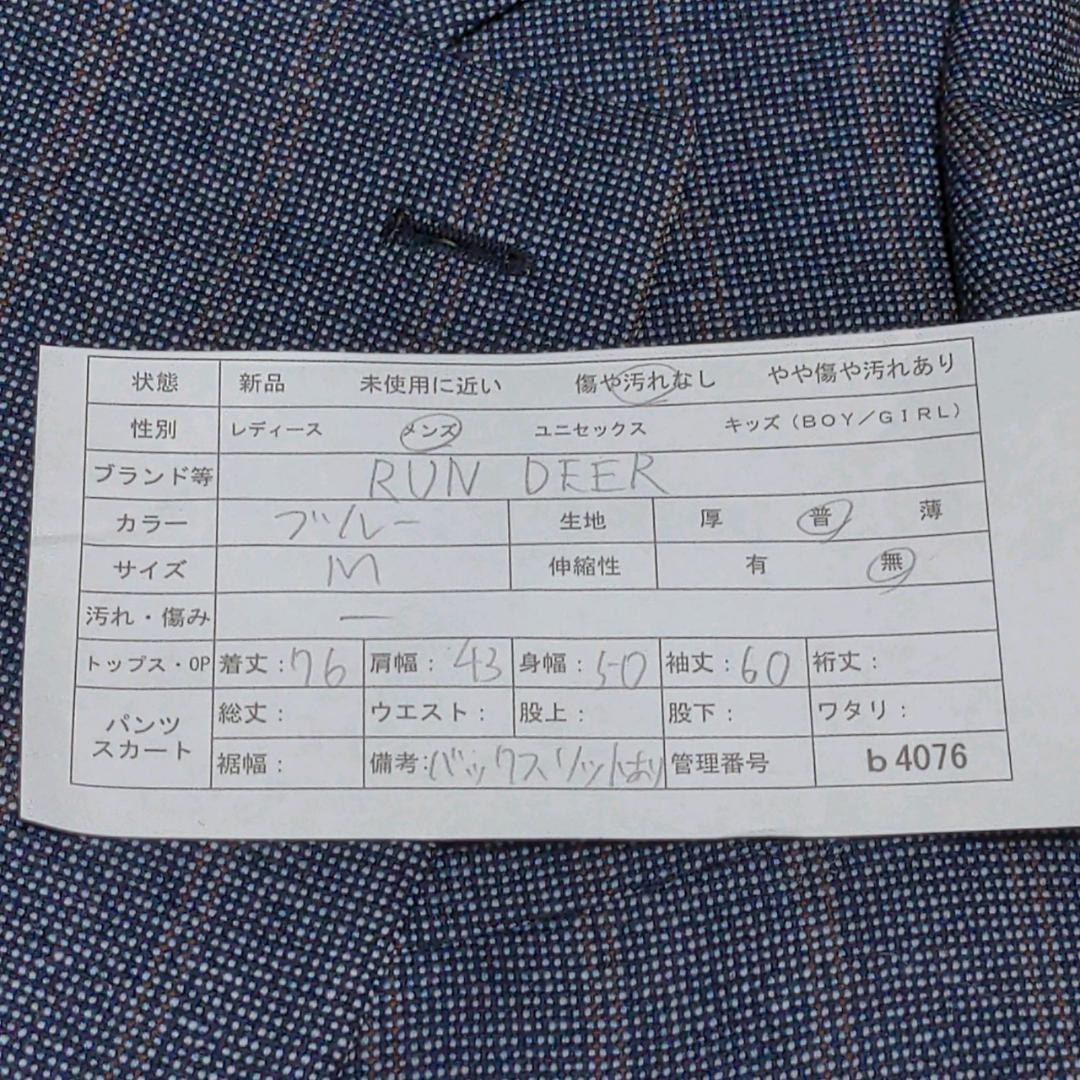 状態 新品 未使用に近い 傷や汚れなし やや傷や汚れあり
性別 レディース メンズ ユニセックス キッズ(BOY/GIRL)
ブランド等 RUN DEER
カラー ブルー 生地 厚 普 薄
サイズ M 伸縮性 有 無
汚れ・傷み ー
トップス・OP 着丈:76 肩幅:43 身幅:50 袖丈:60 裄丈:
パンツ スカート 総丈: ウエスト: 股上: 股下: ワタリ:
裾幅: 備考:バックスリットあり 管理番号 b4076